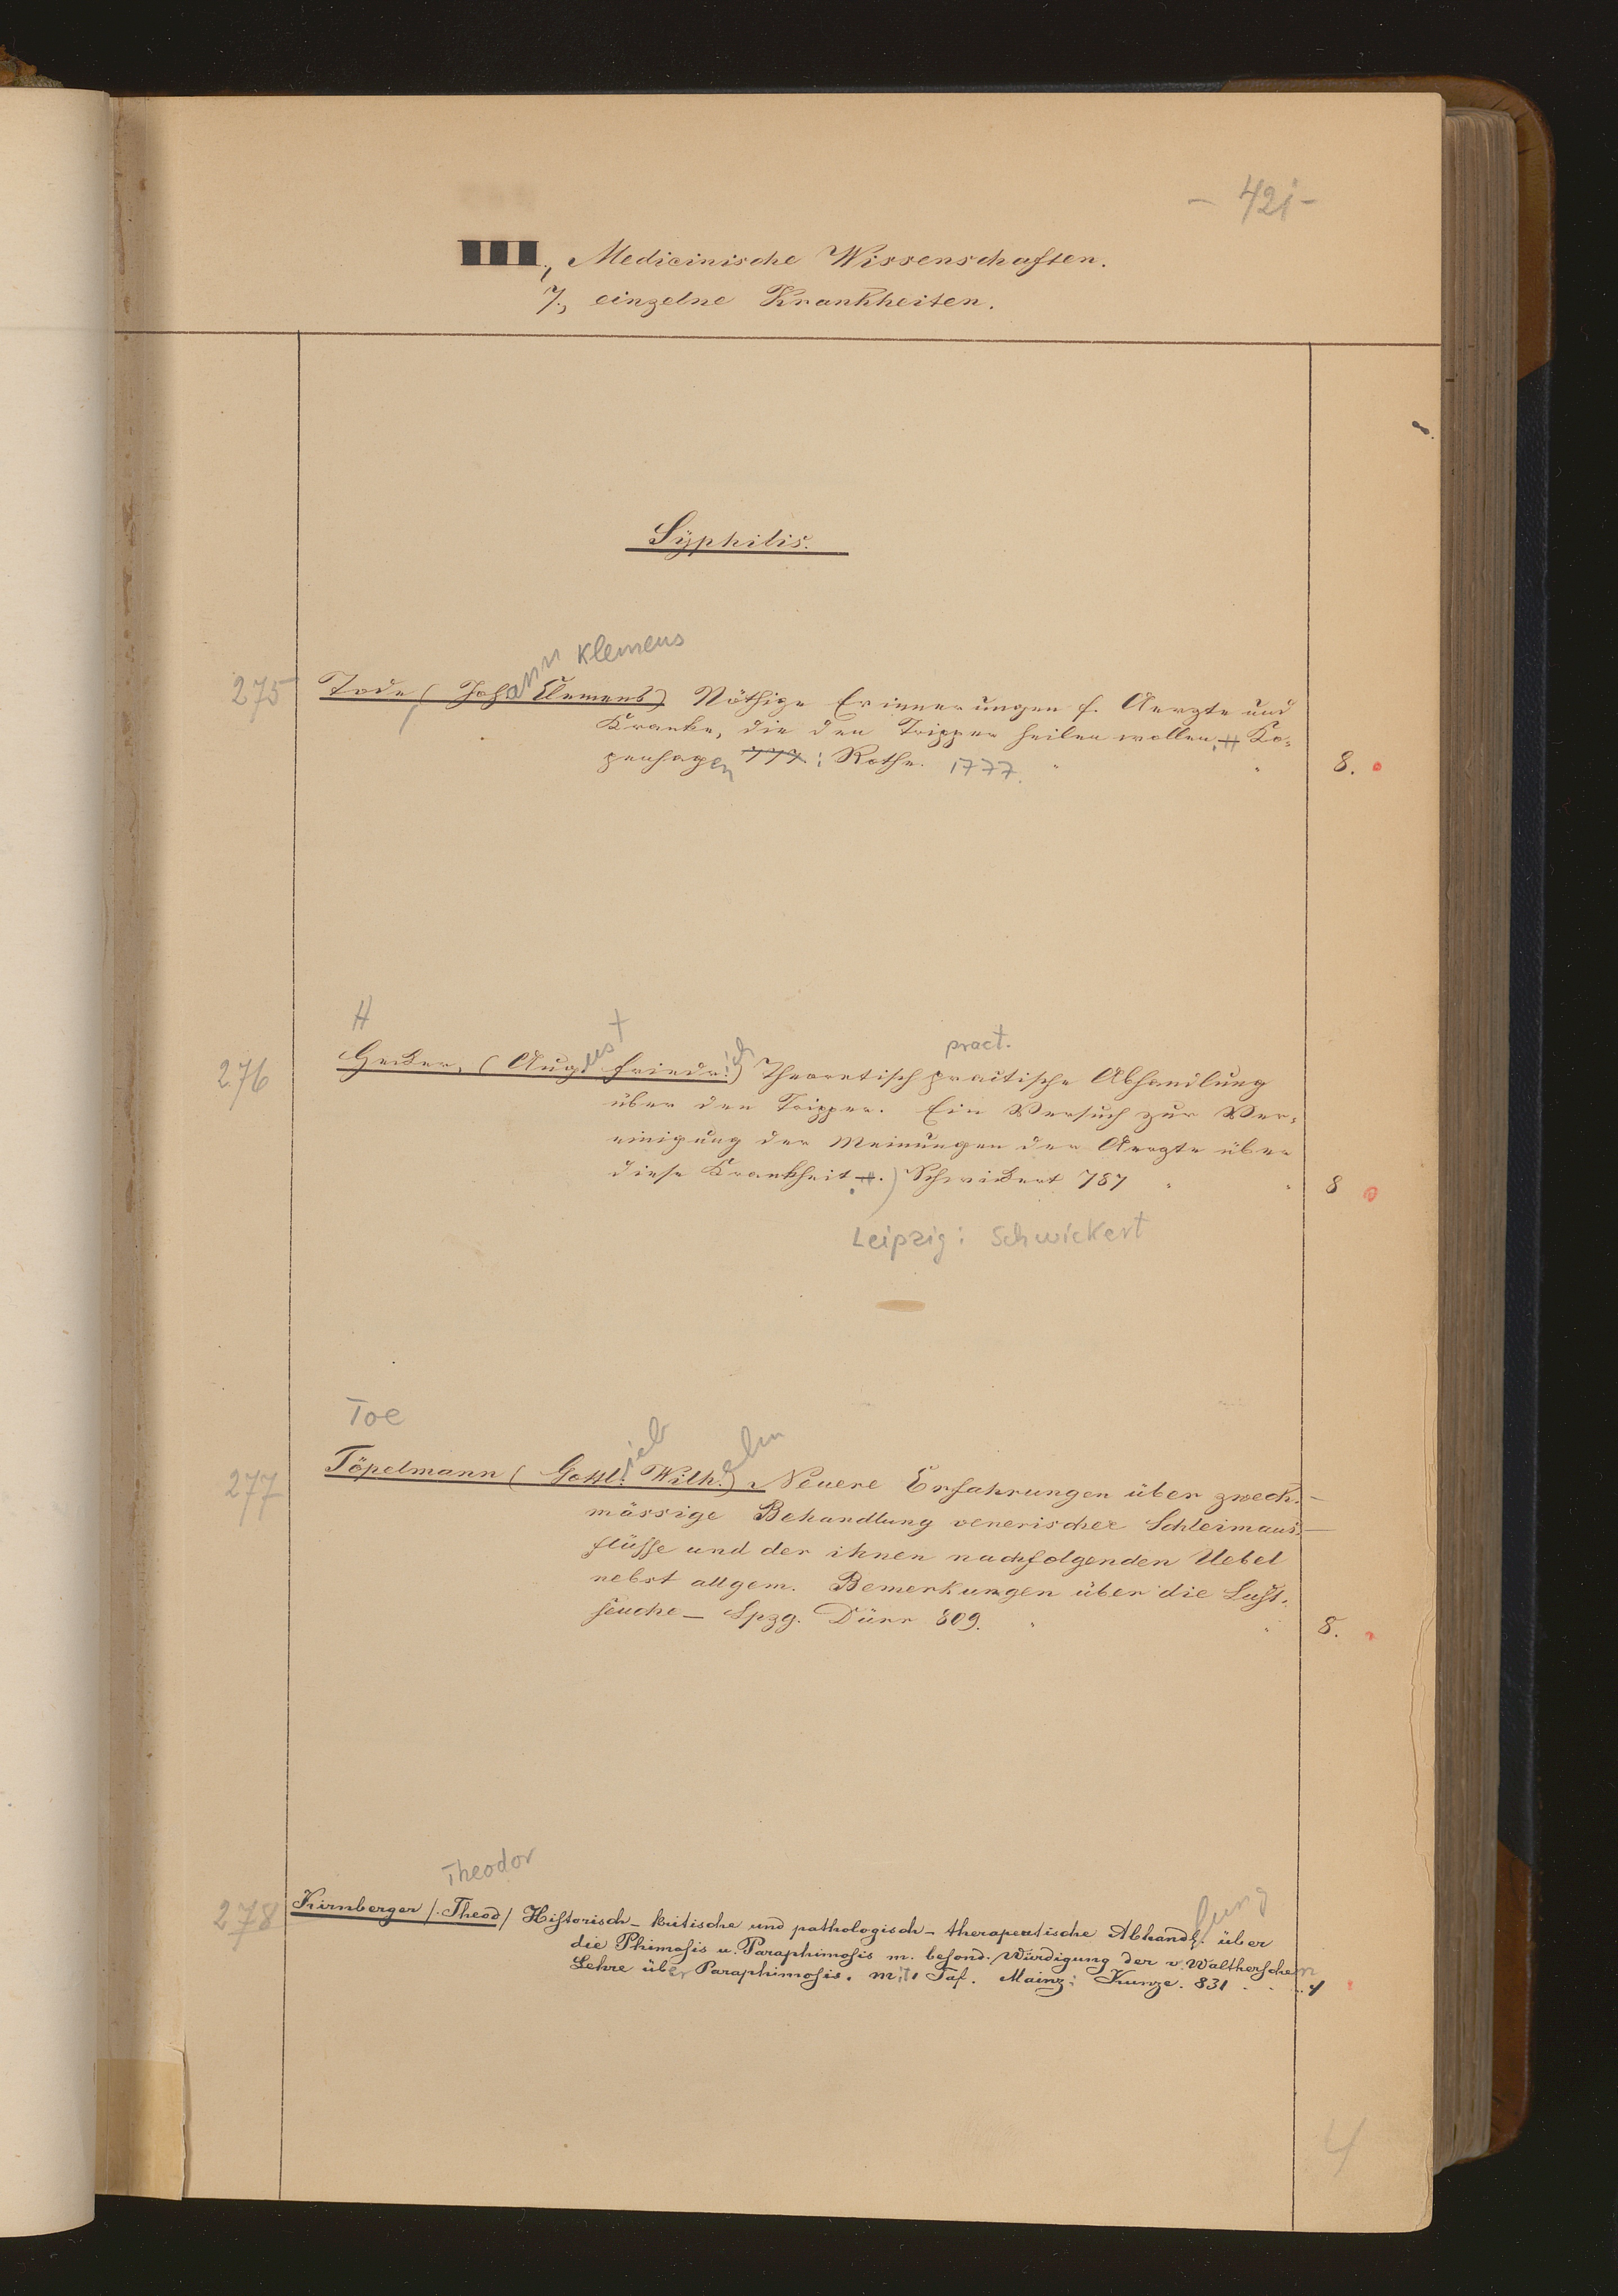 - 421 -
III., Medicinische Wissenschaften.
7., einzelne Krankheiten.
Syphilis.
ann Klemens
275 Tode, (Joh. Clemens) Nöthige Erinnerungen f. Aerzte und
Kranke, die den Tripper heilen wollen. Ko=
penhagen 777: Rothe. 1777. " " 8.
H
ust ich pract.
276 Hecker, (Aug. Friedr.) Theoretisch practische Abhandlung
über den Tripper. Ein Versuch zur Ver=
einigung der Meinungen der Aerzte über
diese Krankheit.) Schwickert 787 " " 8
Leipzig: Schwickert
Toe
ieb elm
277 Töpelmann (Gottl. Wilh.) Neuere Erfahrungen über zweck-
mässige Behandlung venerischer Schleimaus-
flüsse und der ihnen nachfolgenden Uebel
nebst allgem. Bemerkungen über die Lust-
seuche - Lpzg. Dürr 809. " " 8.
Theodor
lung
278 Kirnberger /. Theod / Historisch - kritische und pathologisch - therapeutische Abhandl. über
die Phimosis u. Paraphimosis m. besond. Würdigung der v. Walther'schen
Lehre über Paraphimosis. mit 1 Taf. Mainz: Kunze. 831 . . . 4
4